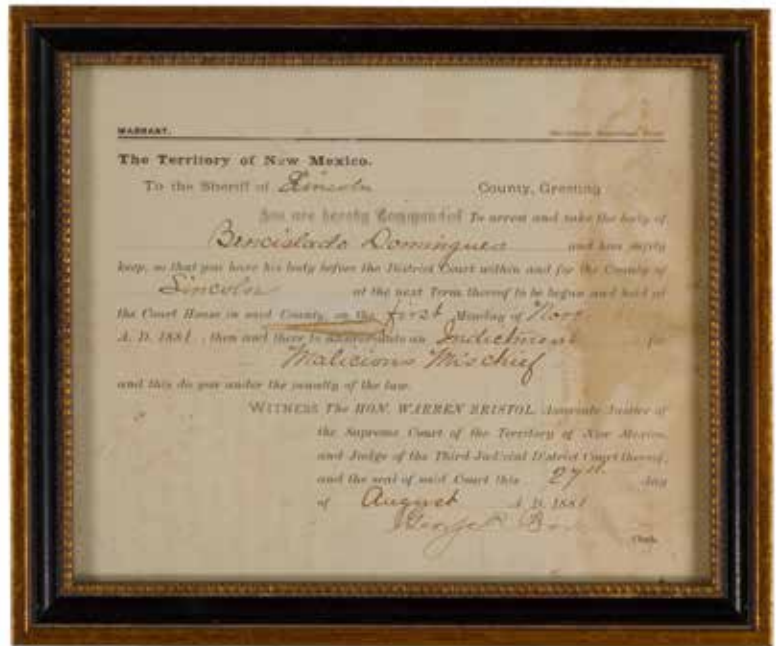 WARRANT.
The Territory of New Mexico.
To the Sheriff of Lincoln County, Greeting
You are hereby Commanded To arrest and take the body of
Bencislado Domingues and him safely
keep, so that you have his body before the District Court within and for the County of
Lincoln at the next Term thereof to be begun and held at
the Court House in said County, on the first Monday of Nov
A. D. 1881, then and there to answer unto an Indictment for
Malicious Mischief
and this do you under the penalty of the law.
WITNESS The HON. WARREN BRISTOL Associate Justice of
the Supreme Court of the Territory of New Mexico,
and Judge of the Third Judicial District Court thereof,
and the seal of said Court this 27th day
of August A. D. 1881
George
Clerk